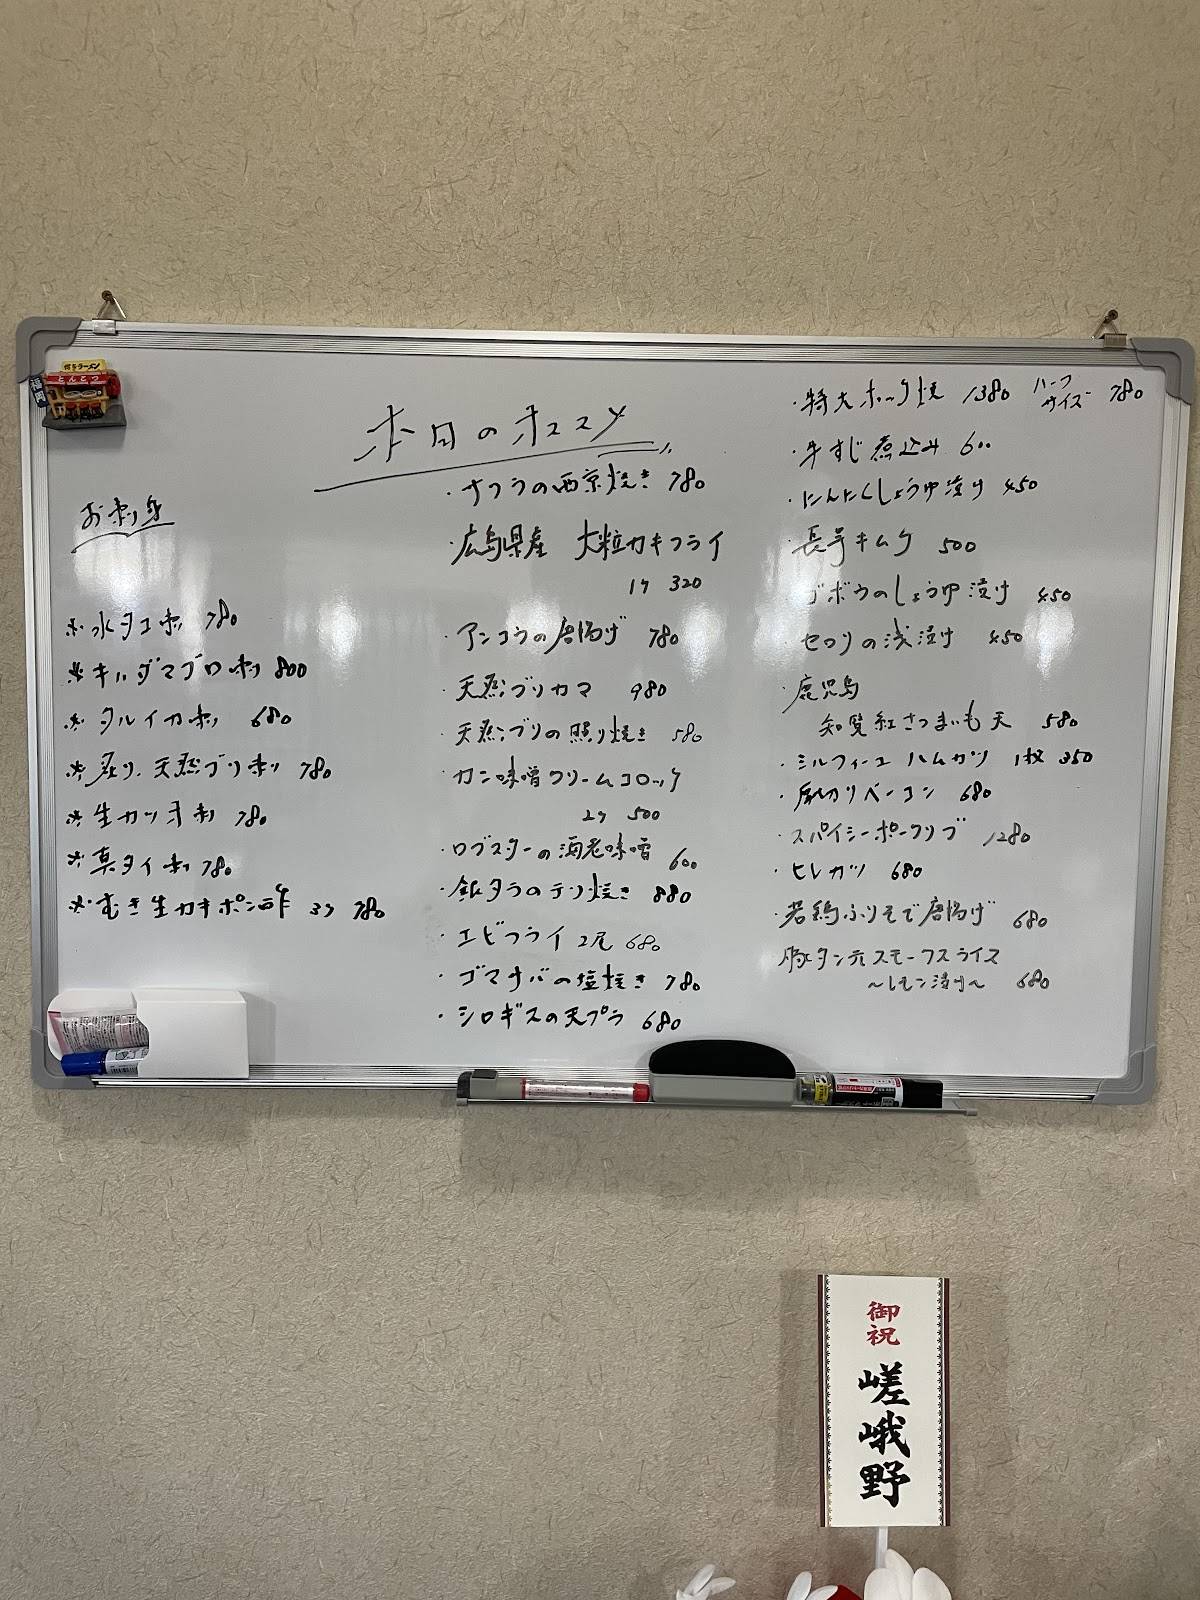 本日のオススメ
お刺身
※水タコ刺 780
※キハダマグロ刺 800
※タルイカ刺 680
※炙り、天然ブリ刺 780
※生カツオ刺 780
※真タイ刺 780
※むき生カキポン酢 3ケ 780
・サワラの西京焼き 780
・広島県産 大粒カキフライ
1ケ 320
・アンコウの唐揚げ 780
・天然ブリカマ 980
・天然ブリの照り焼き 580
・カニ味噌クリームコロッケ
2ケ 500
・ロブスターの海老味噌 600
・銀タラのテリ焼き 880
・エビフライ 2尾 680
・ゴマサバの塩焼き 780
・シロギスの天プラ 680
・特大ホッケ焼 1380 ハーフサイズ 780
・牛すじ煮込み 600
・にんにくしょうゆ漬け 450
・長芋キムチ 500
・ゴボウのしょうゆ漬け 450
・セロリの浅漬け 450
・鹿児島
知覧紅さつまいも天 580
・ミルフィーユ ハムカツ 1枚 350
・厚切りベーコン 680
・スパイシーポークリブ 1280
・ヒレカツ 680
・若鶏ふりそで唐揚げ 680
豚タン元スモークスライス
～レモン漬け～ 680
博多ラーメン
とんこつ
福岡
御祝
嵯峨野